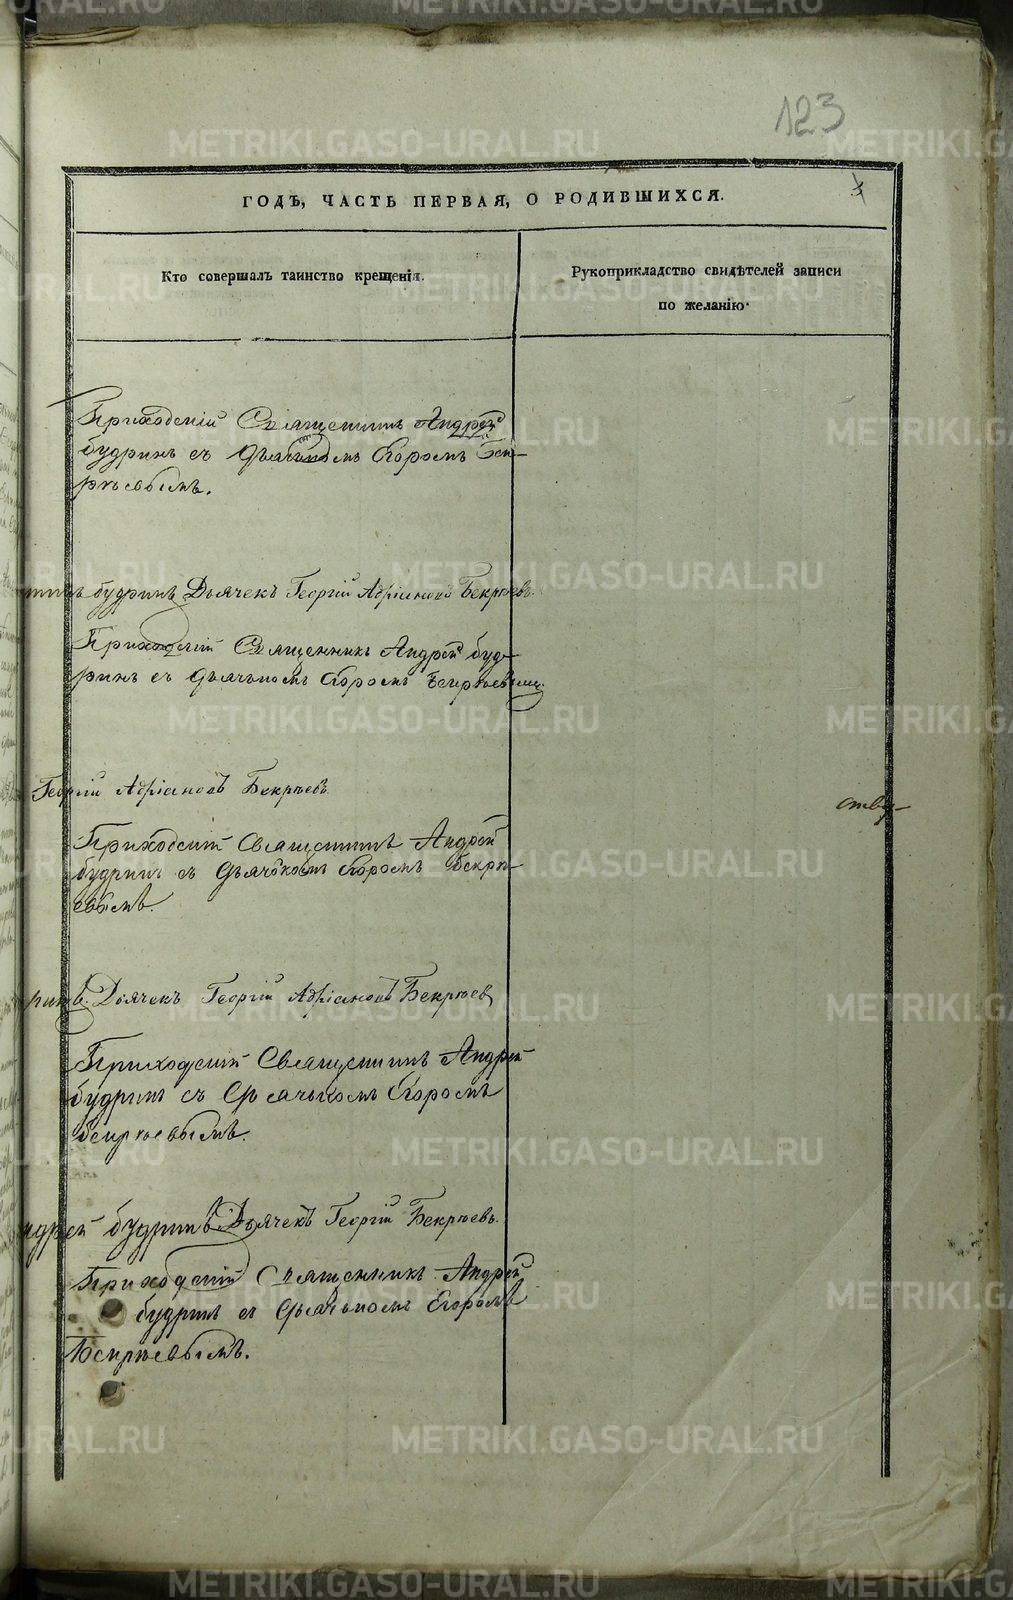 123
ГОДЪ, ЧАСТЬ ПЕРВАЯ, О РОДИВШИХСЯ.
3
Кто совершалъ таинство крещенія.
Рукоприкладство свидѣтелей записи
по желанію.
Приходскій Священникъ Андрей
Будринъ съ Дьячькомъ Егоромъ Бек-
рѣевымъ.
Будринъ Дьячекъ Георгій Адріановъ Бекрѣевъ.
Приходскій Священникъ Андрей Буд-
ринъ съ Дьячькомъ Егоромъ Бекрѣевымъ.
Георгій Адріановъ Бекрѣевъ
Приходскій Священникъ Андрей
Будринъ съ Дьячкомъ Егоромъ Бекрѣ-
евымъ.
Дьячекъ Георгій Адріановъ Бекрѣевъ
Приходскій Священникъ Андрей
Будринъ съ Дьячькомъ Егоромъ
Бекрѣевымъ.
Будринъ Дьячекъ Георгій Бекрѣевъ.
Приходскій Священникъ Андрей
Будринъ съ Дьячькомъ Егоромъ
Бекрѣевымъ.
METRIKI.GASO-URAL.RU